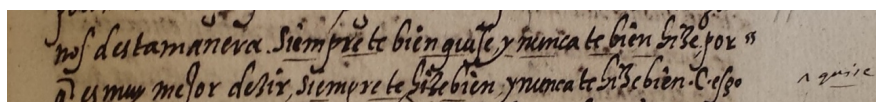 nos desta manera. Siempre te bien quise, y nunca te bien hize, por "
q̃ es muy mejor dezir, siempre te hize bien, y nunca te hize bien.
^ quise